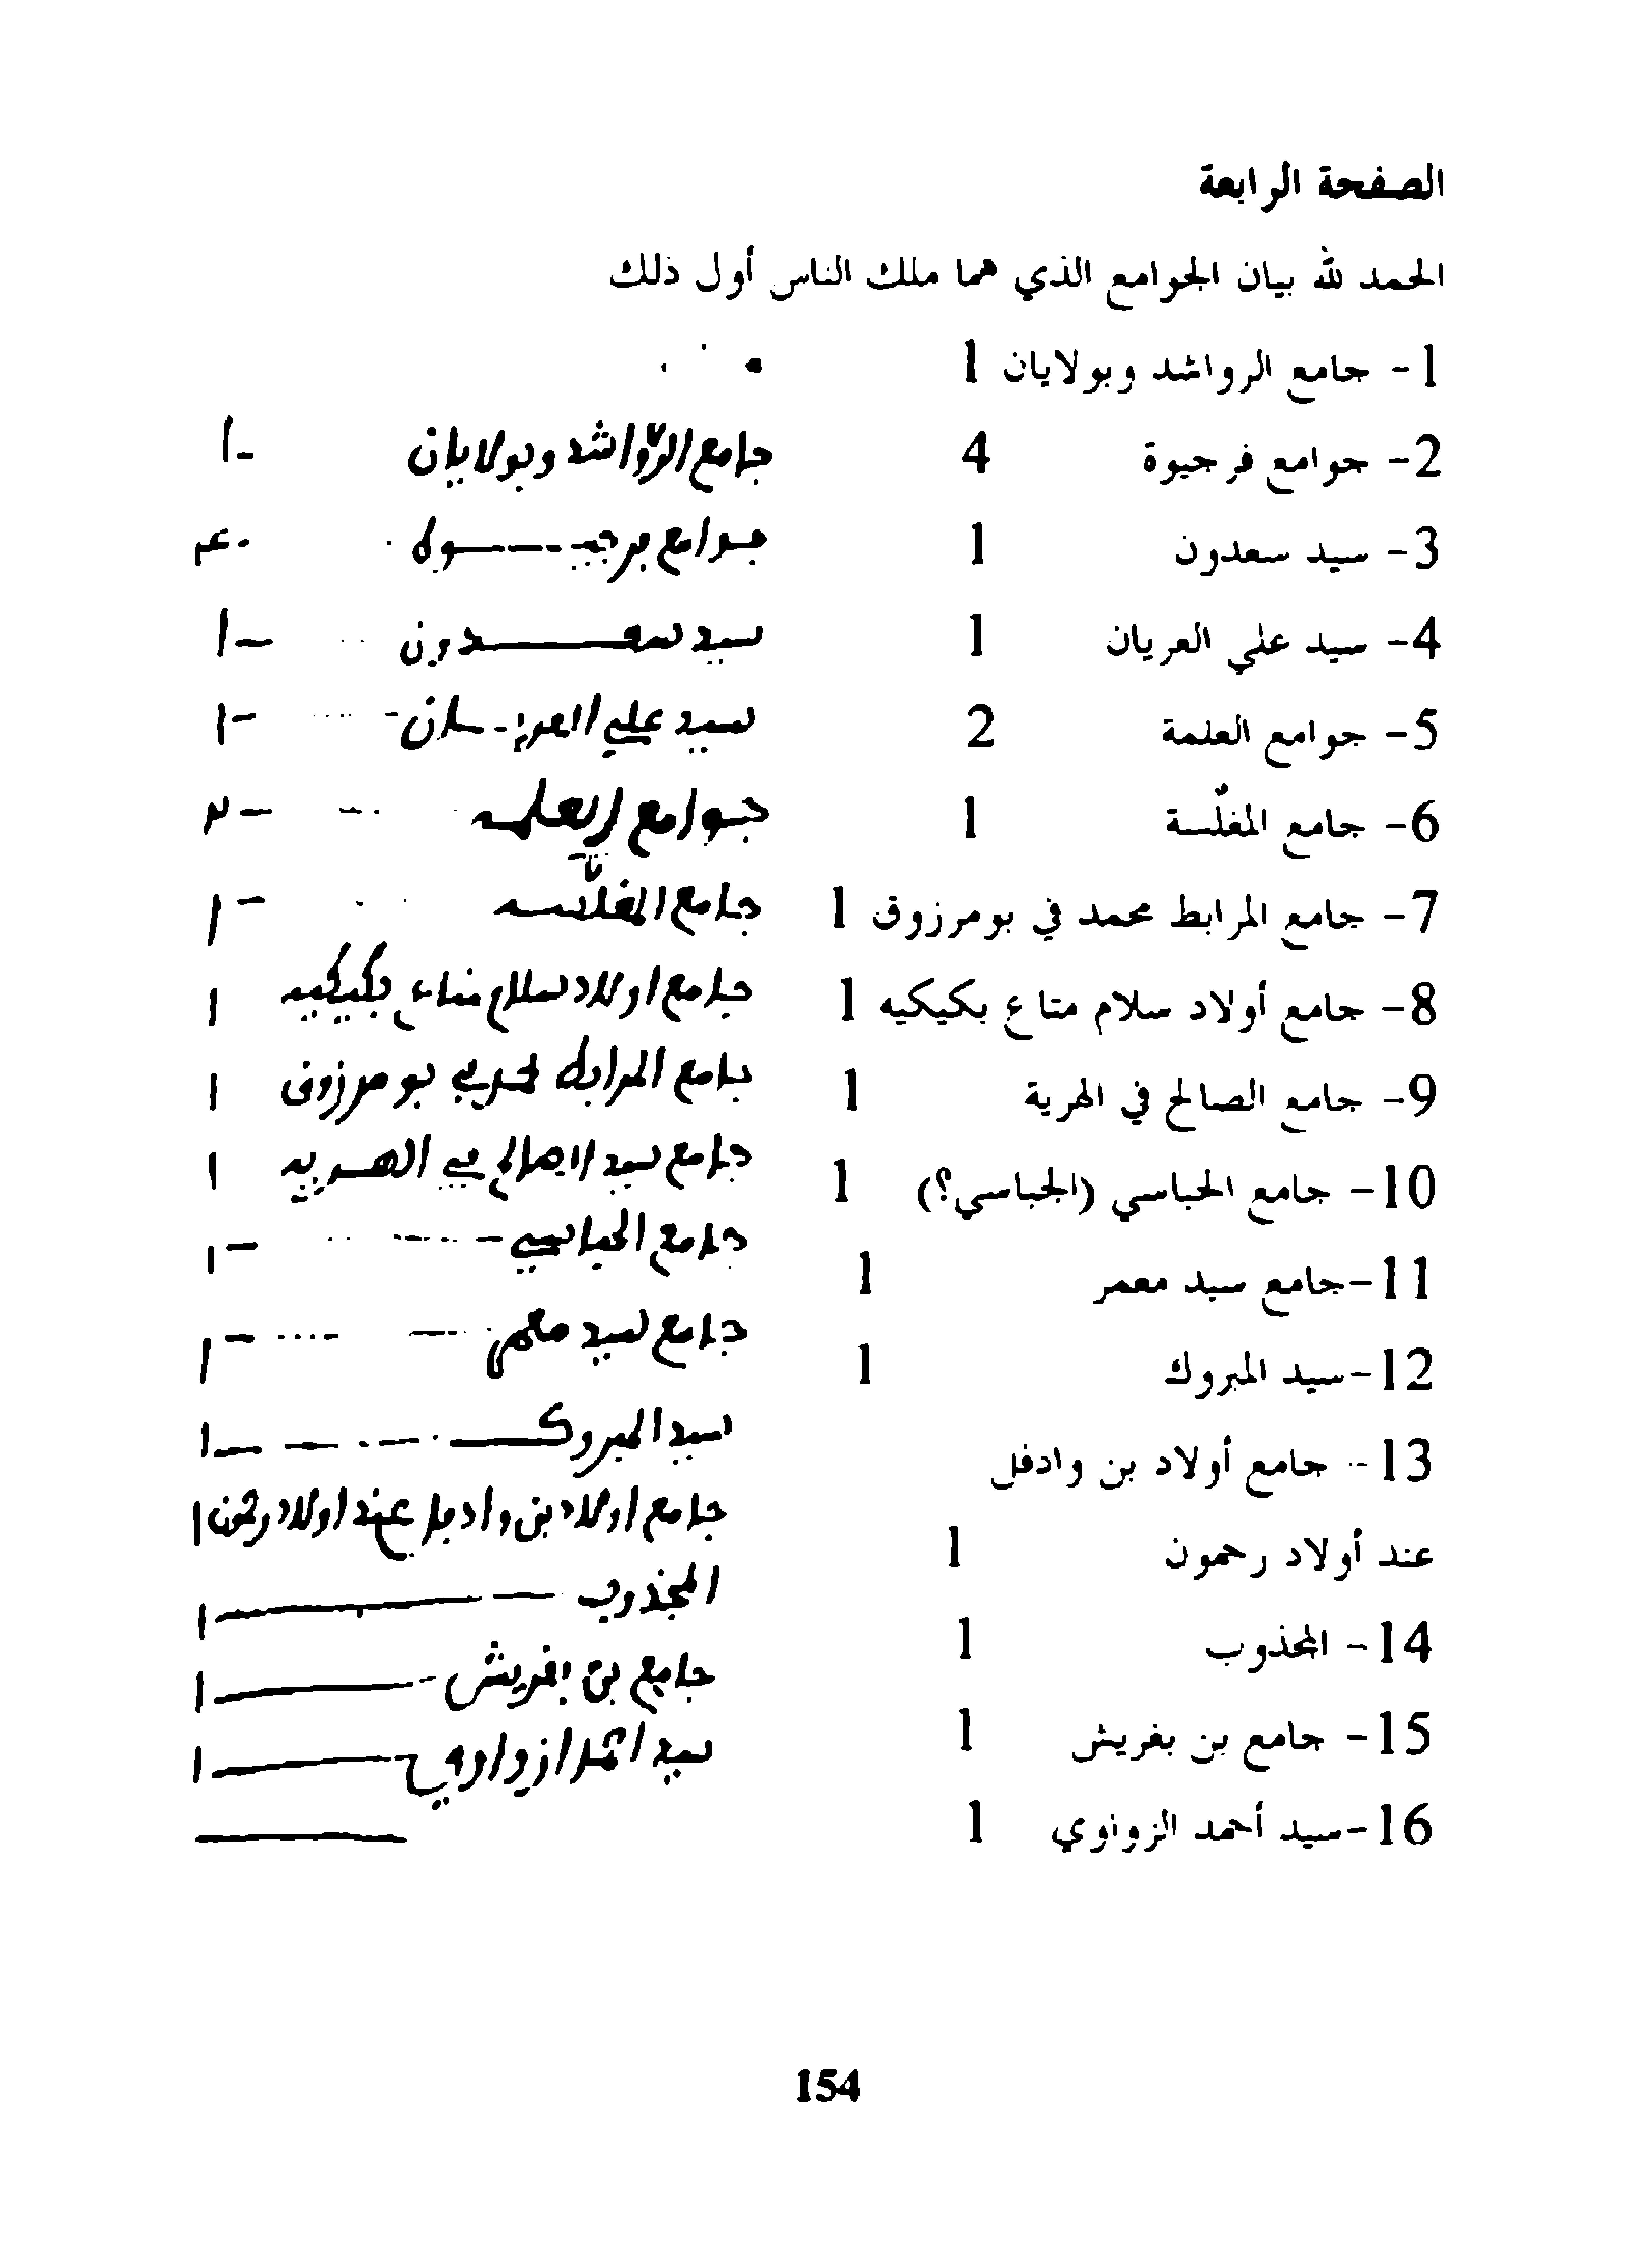 الصفحة الرابعة
الحمد لله بيان الجوامع الذي هما ملك الناس أول ذلك
1- جامع الرواشد وبولايان 1
2- جوامع فرجيوة 4
3- سيد سعدون 1
4- سيد علي العريان 1
5- جوامع العلمة 2
6- جامع المغلّسة 1
7- جامع المرابط محمد في بومرزوق 1
8- جامع أولاد سلام متاع بكيكيه 1
9- جامع الصالح في الهرية 1
10- جامع الحباسي (الجباسي؟) 1
11-جامع سيد معمر 1
12-سيد المبروك 1
13- جامع أولاد بن وادفل
عند أولاد رحمون 1
14- المجذوب 1
15- جامع بن بغريش 1
16-سيد أحمد الزواوي 1
جامع الرواشد وبولايان -ا
جوامع فرجيوة -۴
سيد سعدون -ا
سيد علي العريان -ا
جوامع العلمه -٢
جامع المغلّسه -ا
جامع اولاد سلام متاع بكيكيه ا
جامع المرابط محمد في بومرزوق ا
جامع سيد الصالح في الهريه ا
جامع الحباسي -ا
جامع سيد معمر -ا
سيد المبروك -ا
جامع اولاد بن وادفل عند اولاد رحمون ا
المجذوب ا
جامع بن بغريش ا
سيد احمد ازواوي ا
154